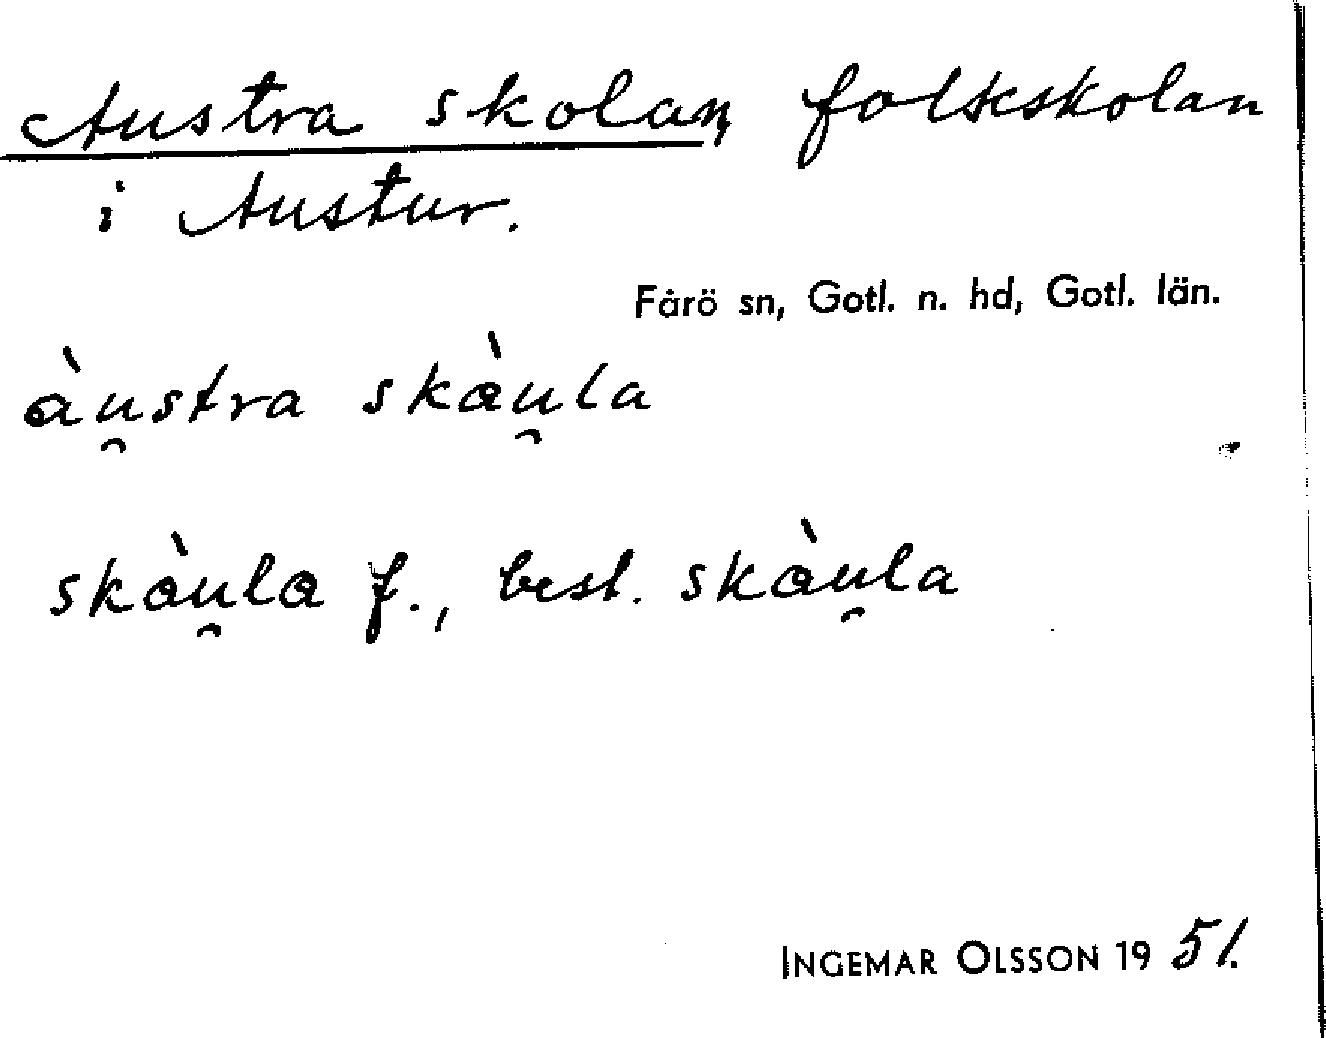 Austra skolan, folkskolan
i Austur.
Fårö sn, Gotl. n. hd, Gotl. län.
àu̯stra skàu̯la
skàu̯la f., best. skàu̯la
INGEMAR OLSSON 1951.